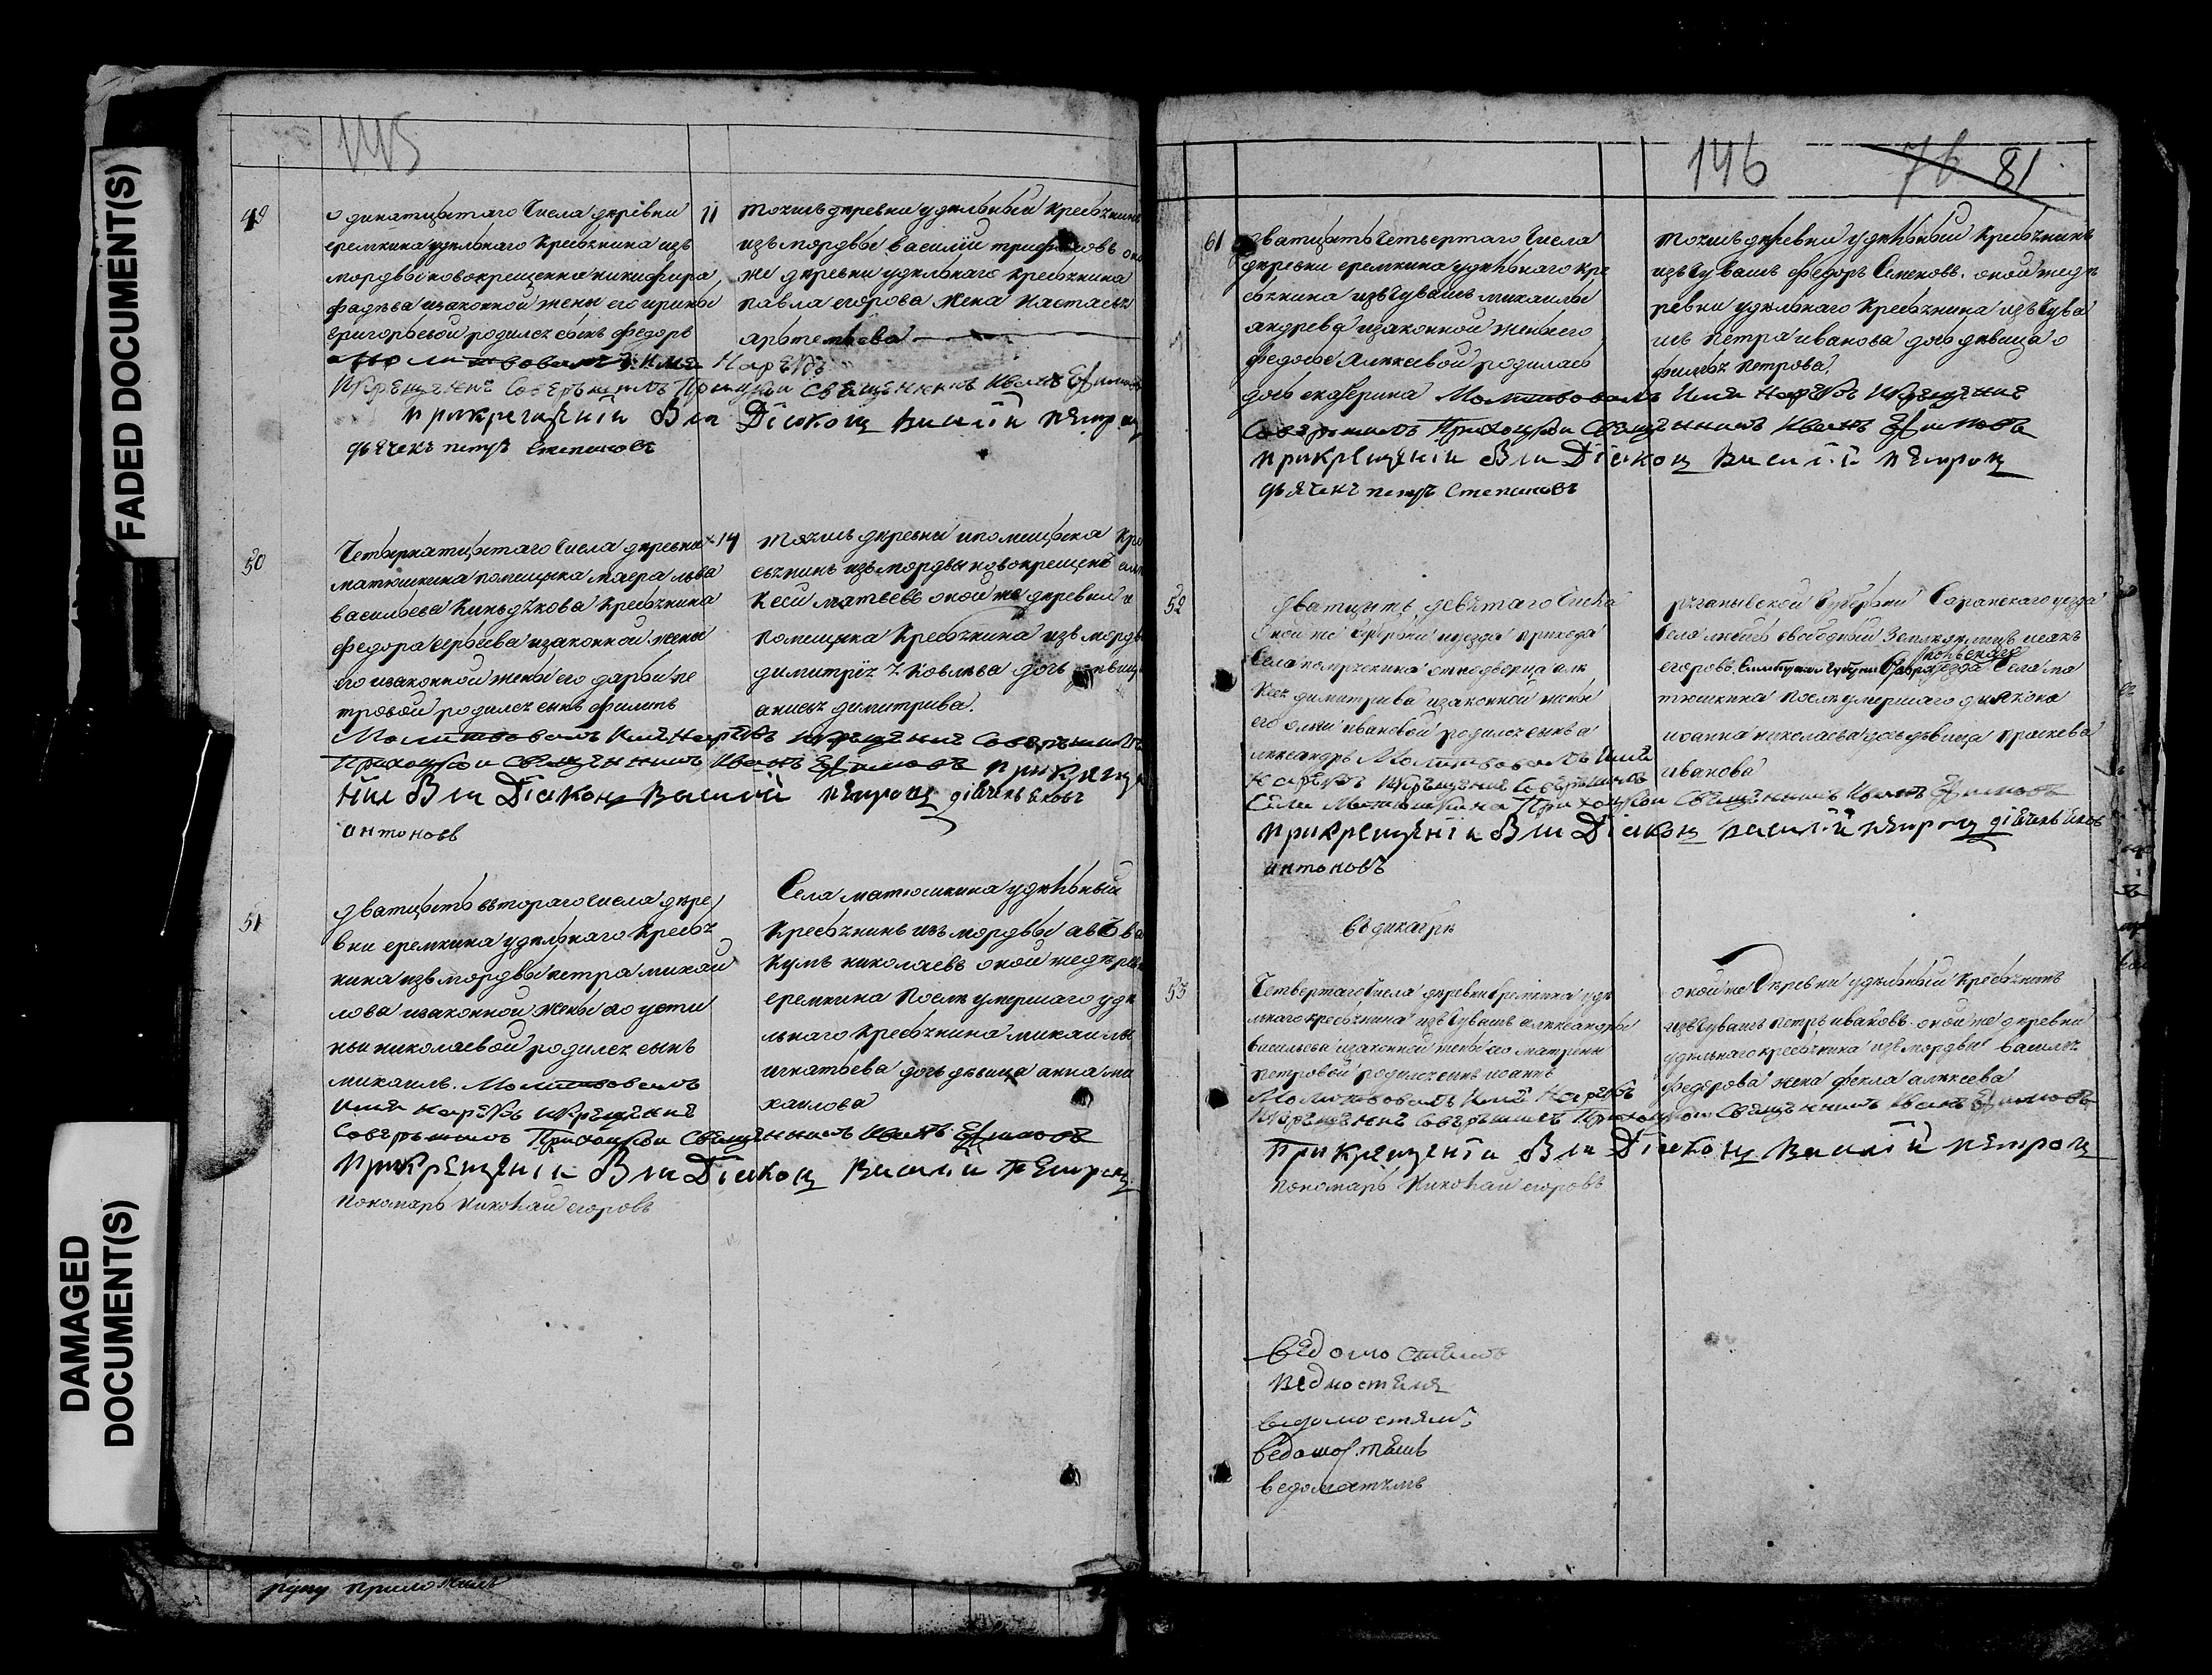 FADED DOCUMENT(S)
DAMAGED DOCUMENT(S)
145
49
одинатцатаго числа деревни 11
еремкина удельнаго крестьянина изъ
мордвы новокрещенна никифора
фадѣва изаконной жены его ирины
григорьевой родился сынъ федоръ
Молитвовалъ Имя Нарекъ
Икрещение Соверъшилъ Приходской Священникъ Иванъ Ефимовъ
прикрещении Был Дiаконъ Василiй петровъ
дьячекъ петръ степановъ
тойжъ деревни удельный крестьянинъ
изъ мордвы василiй трифоновъ оной
же деревни удельнаго крестьянина
павла егорова жена настасья
артемьева
50
Четырнатцатаго числа деревни 14
матюшкина помещика маера льва
васильева крестьянина
федора изаконной жены
его изаконной жены его дарьи пе
тровой родился сынъ филипъ
Молитвовалъ Имя Нарекъ Икрещение Совершилъ
Приходской Священникъ Иванъ Ефимовъ прикреще
нiи Был Дiаконъ Василiй петровъ дiячекъ яковъ
антоновъ
тойжъ деревни помещика кре
стьянинъ изъ мордвы новокрещенъ але
ксей матвевъ оной же деревни
помещика крестьянина изъ мордвы
димитрия яковлева дочь девица
анисья димитрива.
51
дватцать втораго числа дере
вни еремкина удельнаго кресть
нина изъ мордвы петра михаи
лова изаконной жены его усти
ньи николаевой родился сынъ
михаилъ. Молитвовалъ
Имя нарекъ икрещение
Соверъшилъ Приходской Священникъ Иванъ Ефимовъ
Прикрещенiи Был Дiаконъ Василiй Петровъ
пономарь Николай егоровъ
Села матюшкина удельный
крестьянинъ изъ мордвы авва
кумъ николаевъ оной же дерев
еремкина после умершаго уде
льнаго крестьянина михаилы
игнатьева дочь девица анна ми
хаилова
руку приложилъ
146 76 81
61
дватцать четвертаго числа
деревни еремкина удельнаго кре
стьянина изъ чувашъ михаилы
андрева изаконной жены его
федосьи алексеевой родилась
дочь екатерина Молитвовалъ Имя Нарекъ Икрещение
Совершилъ Приходской Священникъ Иванъ Ефимовъ
прикрещенiи Был Дiаконъ Василiй петровъ
дьячекъ петръ Степановъ
тойжъ деревни удельный крестьянинъ
изъ чувашъ федоръ Семеновъ. оной же де
ревни удельнаго крестьянина изъ чува
шъ петра иванова дочь девица о
фимья петрова.
52
дватцать девятаго числа
оной же губернии уезда прихода
Села однодворца але
ксея димитрива изаконной жены
его ольги ивановой родился сынъ а
лександръ Молитвовалъ Имя
нарекъ Икрещение Совершилъ
Села Матюшкина Приходской Священникъ Иванъ Ефимовъ
прикрещенiи Был Дiаконъ василiй петровъ дiячекъ яковъ
антоновъ
губернии Саранскаго уезда
Села свободный исакъ
егоровъ. Симбирской губернии уезда Села ма
тюшкина после умершаго дьякона
иоанна николаева дочь девица праскева
иванова
въ декабре
53
Четвертаго числа деревни еремкина уде
льнаго крестьянина изъ чувашъ александры
васильева изаконной жены его матрены
петровой родился сынъ иоаннъ
Молитвовалъ Имя Нарекъ
Икрещение Совершилъ Приходской Священникъ Иванъ Ефимовъ
Прикрещенiи Был Дiаконъ Василiй петровъ
пономарь Николай егоровъ
оной же деревни удельный крестьянинъ
изъ чувашъ петръ ивановъ. оной же деревни
удельнаго крестьянина изъ мордвы василья
федерова жена фекла алексеева
ведомостямъ
ведмостямя
ведомостямъ
ведомостямъ
ведомостямъ